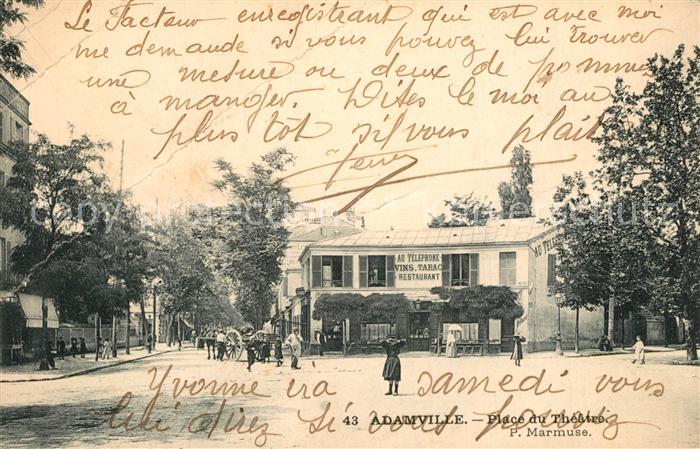 Le Facteur enregistrant qui est avec moi
me demande si vous pouvez lui trouver
une mesure ou deux de pommes
à manger. Dites le moi au
plus tôt sil vous plait
AU TÉLÉPHONE
VINS, TABAC
RESTAURANT
AU TÉLÉ
Yvonne ira samedi vous
43 ADAMVILLE. — Place du Théâtre.
P. Marmuse.
lui direz si vous pouvez